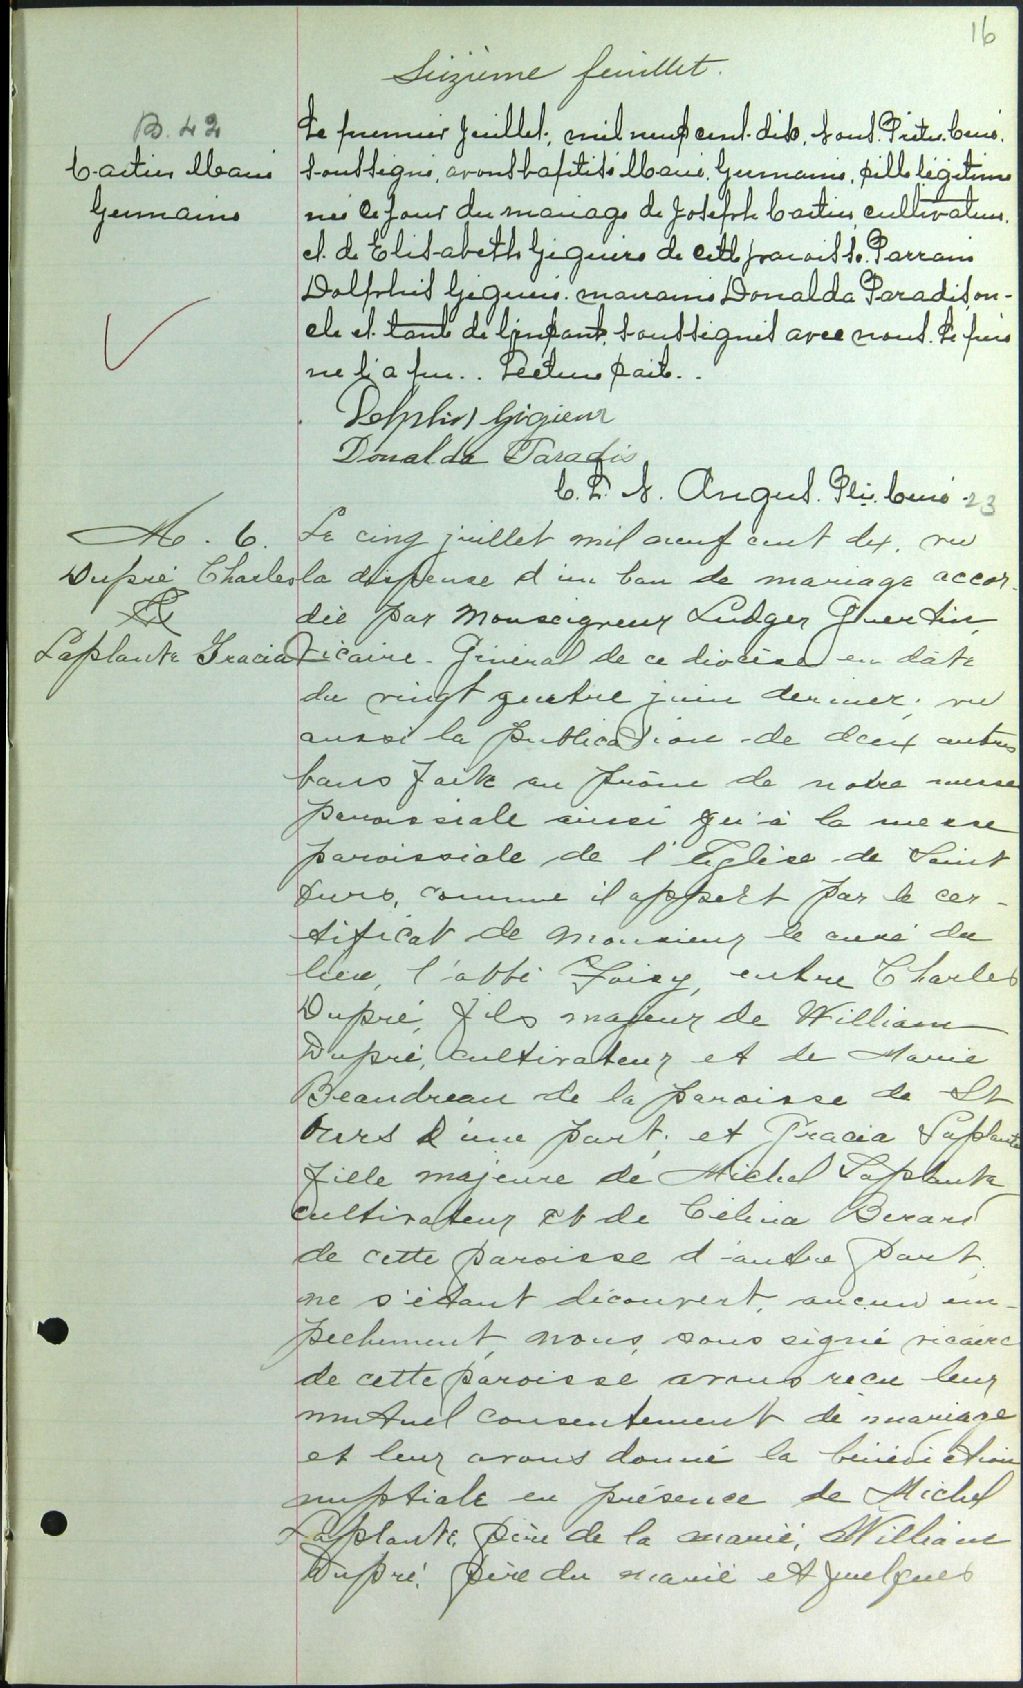 16
Seizième feuillet.
B. 42
Cartier Marie
Germaine
Le premier juillet, mil neuf cent dix, nous Prêtre Curé
soussigné, avons baptisé Marie, Germaine, fille légitime
née ce jour du mariage de Joseph Cartier, cultivateur
et de Elisabeth Giguère de cette paroisse. Parrain
Dolphis Giguère. marraine Donalda Paradis, on-
cle et tante de l'enfant, soussignés avec nous. Le père
ne l'a pu.. Lecture faite..
Delphis Giguère
Donalda Paradis
C. L. A. Angus. Ptr. Curé
23
M. 6.
Dupré Charles
&
Laplante Gracia
Le cinq juillet mil neuf cent dix, vu
la dispense d'un ban de mariage accor-
dée par Monseigneur Ludger Guertin,
Vicaire-Général de ce diocèse en date
du vingt quatre juin dernier; vu
aussi la publication de deux autres
bans faite au prône de notre messe
paroissiale ainsi qu'à la messe
paroissiale de l'Eglise de Saint
Ours, comme il appert par le cer-
tificat de Monsieur le curé du
lieu, l'abbé Foisy, entre Charles
Dupré, fils majeur de William
Dupré, cultivateur et de Marie
Beaudreau de la paroisse de St
Ours d'une part; et Gracia Laplante
fille majeure de Michel Laplante
cultivateur et de Célina Berard
de cette paroisse d'autre part,
ne s'étant découvert, aucun em-
pêchement, nous, sous signé vicaire
de cette paroisse avons reçu leur
mutuel consentement de mariage
et leur avons donné la bénédiction
nuptiale en présence de Michel
Laplante, père de la mariée, William
Dupré, père du marié et quelques